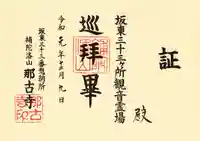 証
殿
坂東三十三ヶ所観音霊場
巡拝畢
令和元年十二月九日
坂東三十三番結願所
補陀洛山 那古寺